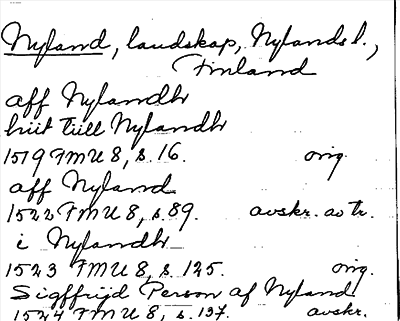 Nyland, landskap, Nylands l.,
Finland
aff Nylandh
hiit tiill Nylandh
1519 FMU 8, s. 16. orig.
aff Nyland
1522 FMU 8, s. 89. avskr. av tr.
i Nylandh
1523 FMU 8, s. 125. orig.
Sigffrijd Person af Nyland
1524 FMU 8, s. 137. avskr.